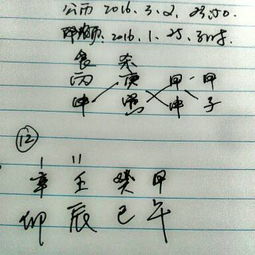 公历 2016、3、2、23:50.
阴历、2016、1、25、子时.
食 杀
丙 庚 甲 甲
申 寅 申 子
⑫
辛 壬 癸 甲
卯 辰 巳 午